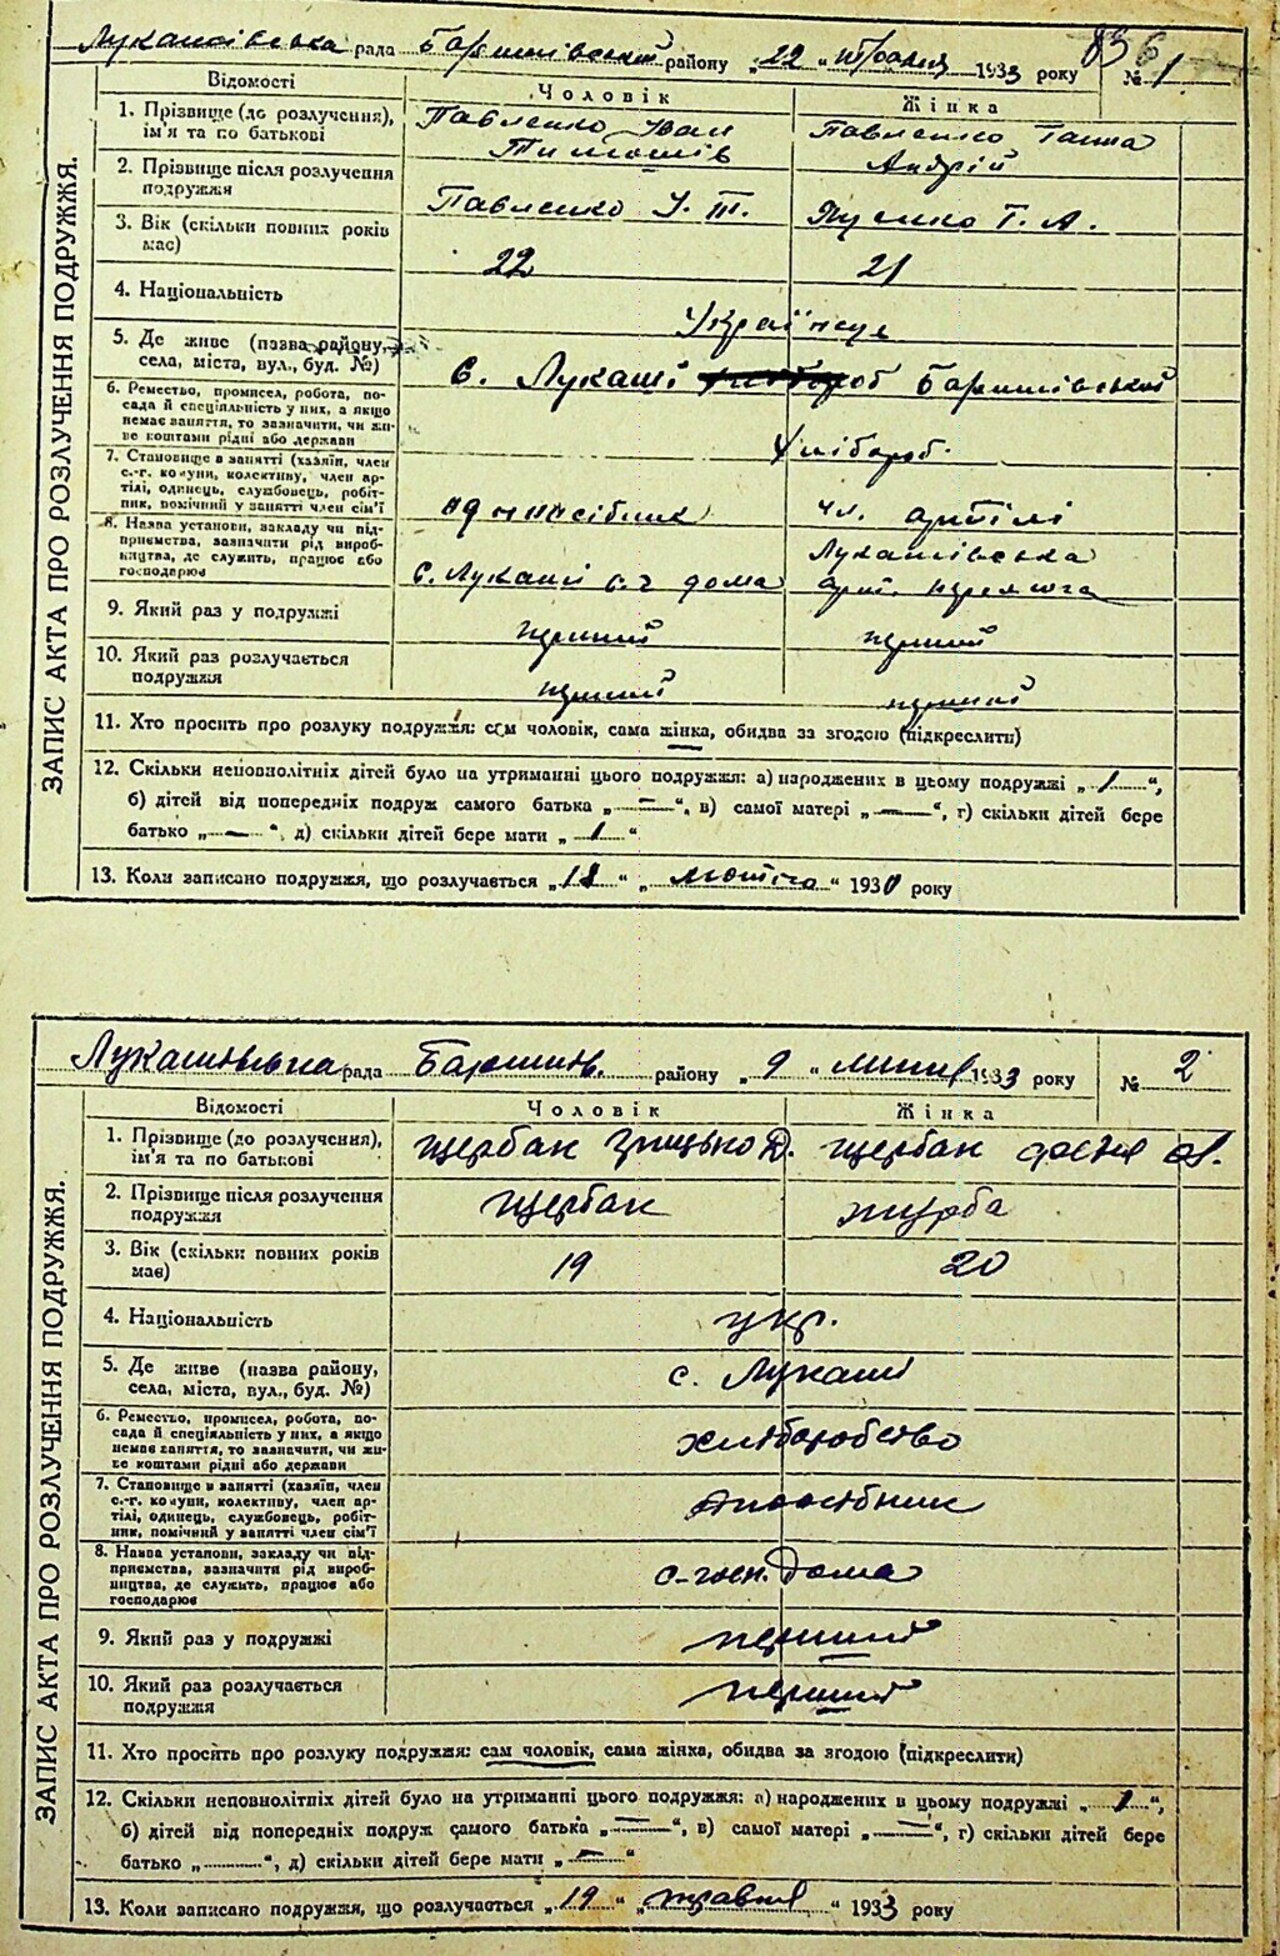 Лукашівська рада Баришівський району „22“ травня 1933 року № 1
836
ЗАПИС АКТА ПРО РОЗЛУЧЕННЯ ПОДРУЖЖЯ.
Відомості Чоловік Жінка
1. Прізвище (до розлучення), ім'я та по батькові Павленко Іван Тимошів Павленко Ганна Андрій
2. Прізвище після розлучення подружжя Павленко І. Т. Г. А.
3. Вік (скільки повних років має) 22 21
4. Національність Українці
5. Де живе (назва району, села, міста, вул., буд. №) С. Лукаші Баришівський
6. Ремество, промисел, робота, посада й спеціяльність у них, а якщо немає заняття, то зазначити, чи живе коштами рідні або держави Хлібороб
7. Становище в занятті (хазяїн, член с.-г. комуни, колективу, член артілі, одинець, службовець, робітник, помічний у занятті член сім'ї одноосібник чл. артілі
8. Назва установи, закладу чи підприємства, зазначити рід виробництва, де служить, працює або господарює С. Лукаші с. г дома Лукашівська арт.
9. Який раз у подружжі перший перший
10. Який раз розлучається подружжя перший перший
11. Хто просить про розлуку подружжя: сам чоловік, сама жінка, обидва за згодою (підкреслити)
12. Скільки неповнолітніх дітей було на утриманні цього подружжя: а) народжених в цьому подружжі „1“,
б) дітей від попередніх подруж самого батька „—“, в) самої матері „—“, г) скільки дітей бере
батько „—“, д) скільки дітей бере мати „1“
13. Коли записано подружжя, що розлучається „18“ „лютого“ 1930 року
Лукашівська рада Баришів. району „9“ липня 1933 року № 2
ЗАПИС АКТА ПРО РОЗЛУЧЕННЯ ПОДРУЖЖЯ.
Відомості Чоловік Жінка
1. Прізвище (до розлучення), ім'я та по батькові Щербак Грицько Д. Щербак
2. Прізвище після розлучення подружжя Щербак Журба
3. Вік (скільки повних років має) 19 20
4. Національність укр.
5. Де живе (назва району, села, міста, вул., буд. №) с. Лукаші
6. Ремество, промисел, робота, посада й спеціяльність у них, а якщо немає заняття, то зазначити, чи живе коштами рідні або держави хліборобство
7. Становище в занятті (хазяїн, член с.-г. комуни, колективу, член артілі, одинець, службовець, робітник, помічний у занятті член сім'ї одноосібник
8. Назва установи, закладу чи підприємства, зазначити рід виробництва, де служить, працює або господарює с-госп. Дома
9. Який раз у подружжі перший
10. Який раз розлучається подружжя перший
11. Хто просить про розлуку подружжя: сам чоловік, сама жінка, обидва за згодою (підкреслити)
12. Скільки неповнолітніх дітей було на утриманні цього подружжя: а) народжених в цьому подружжі „1“,
б) дітей від попередніх подруж самого батька „—“, в) самої матері „—“, г) скільки дітей бере
батько „“, д) скільки дітей бере мати „—“
13. Коли записано подружжя, що розлучається „19“ „травня“ 1933 року